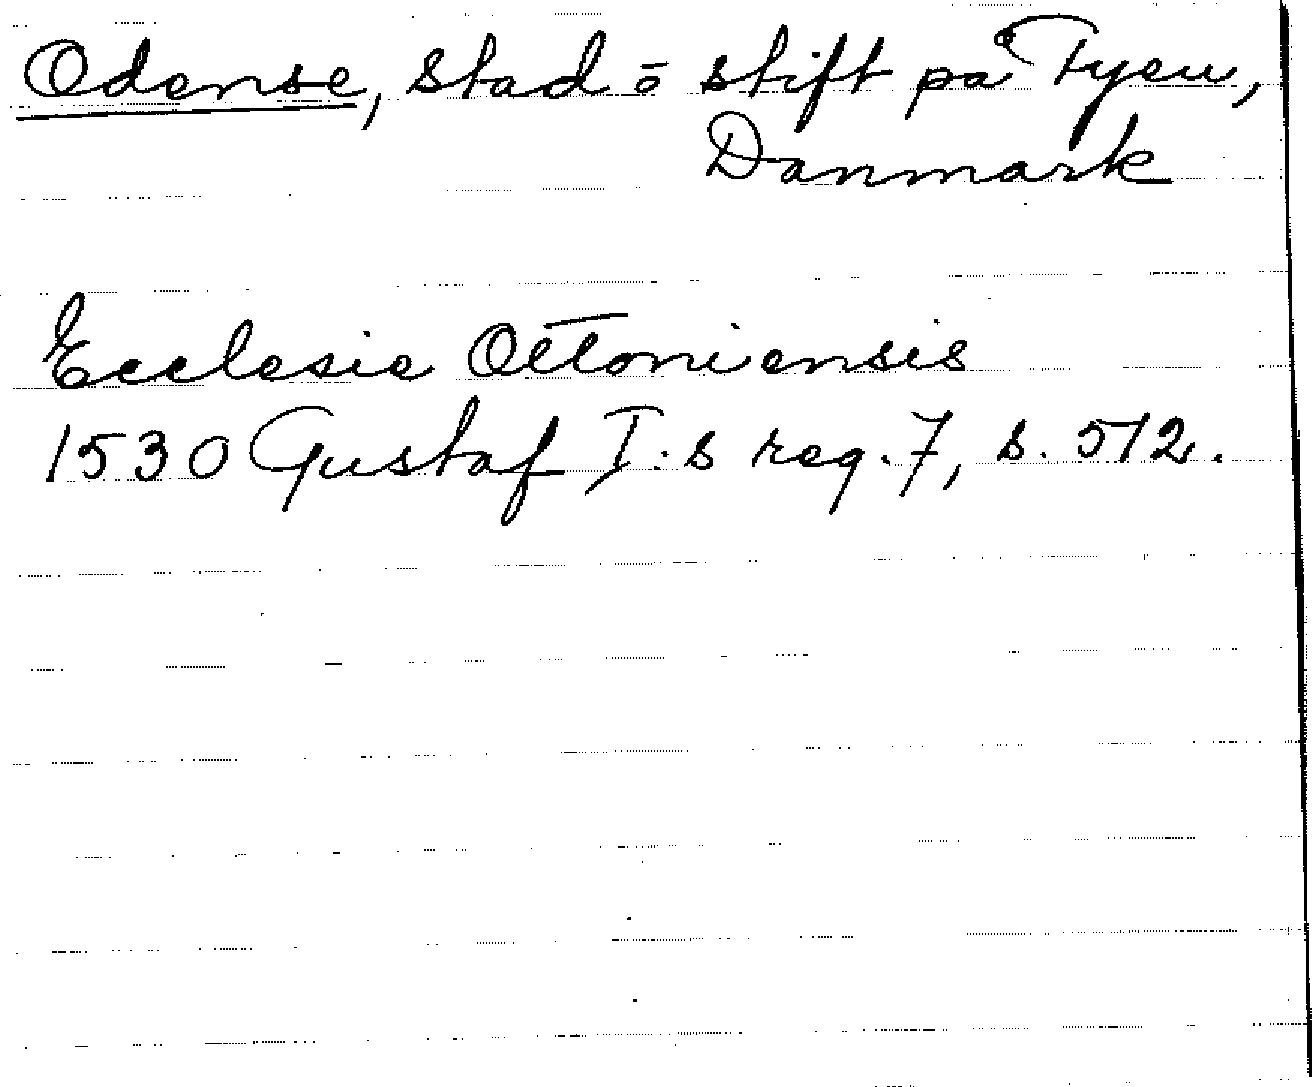 Odense, stad ō stift på Fyen,
Danmark
Ecclesie Ottoniensis
1530 Gustaf I:s reg. 7, s. 572.